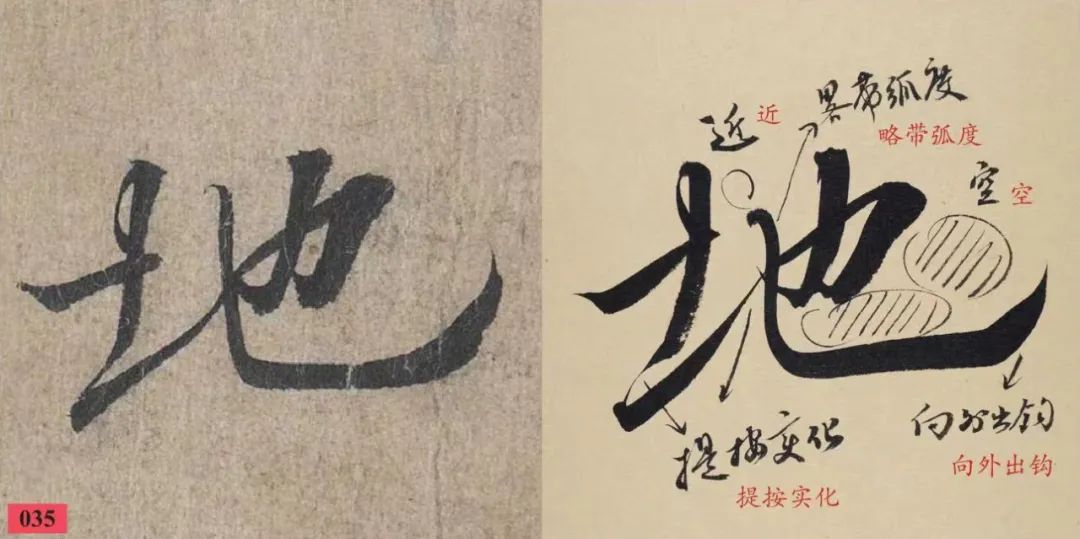 地
035
近 近
略带弧度
略带弧度
空 空
地
提按变化
提按实化
向外出钩
向外出钩